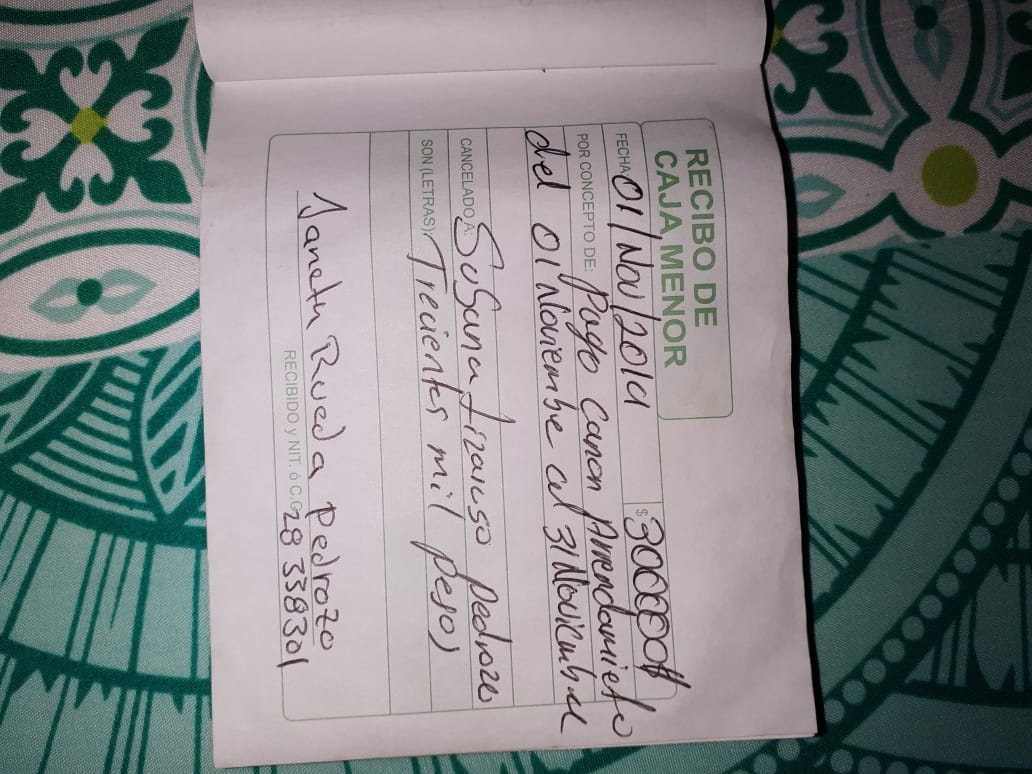 RECIBO DE
CAJA MENOR
FECHA 01/Nov/2019 $ 300000#
POR CONCEPTO DE: Pago canon Arrendamieto
del 01 Noviembre al 31 Noviembre
CANCELADO A: Susana pedrozo
SON (LETRAS): Trecientos mil pesos
Janeth Rueda pedrozo
RECIBIDO y NIT. ó C.C. 28 338301